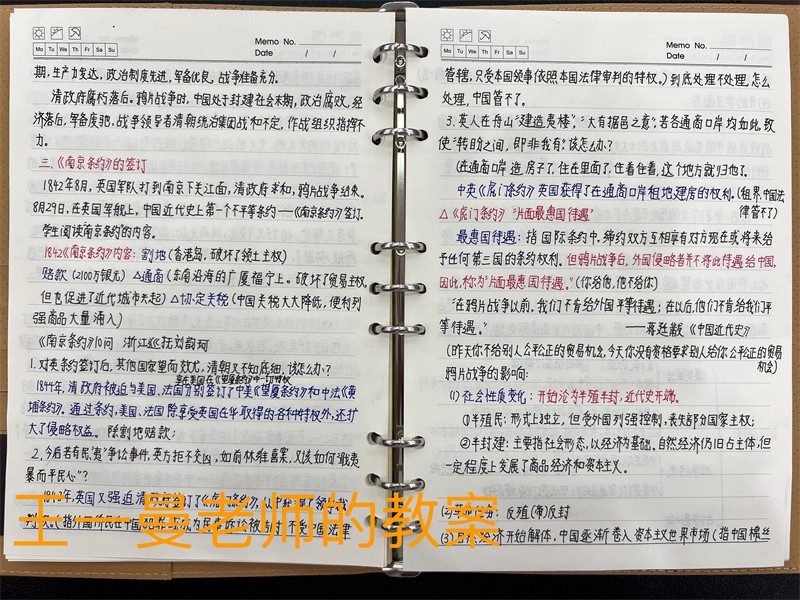 Memo No.
Mo Tu We Th Fr Sa Su
Date / /
期,生产力发达,政治制度先进,军备优良。战争准备充分。
清政府腐朽落后。鸦片战争时,中国处于封建社会末期,政治腐败,经
济落后,军备废弛,战争领导者清朝统治集团战和不定,作战组织指挥不
力。
三、《南京条约》的签订
1842年8月,英国军队打到南京下关江面,清政府求和,鸦片战争结束。
8月29日,在英国军舰上,中国近代史上第一个不平等条约——《南京条约》签订。
学生阅读南京条约的内容。
1842《南京条约》内容: 割地(香港岛,破坏了领土主权)
赔款(2100万银元) △通商(东南沿海的广厦福宁上。破坏了贸易主权,
但也促进了近代城市兴起) △协定关税(中国关税大大降低,便利列
强商品大量涌入)
《南京条约》10问 浙江
1.对英条约签订后,其他国家望而效尤,清朝又不知底细,该怎么办?
享有英国在《望厦条约》中一切特权
1844年,清政府被迫与美国、法国分别签订了中美《望厦条约》和中法《黄
埔条约》。通过条约,美国、法国除享受英国在华取得的各种特权外,还扩
大了侵略权益。除割地赔款;
2.今后若有民"夷"争讼事件,英方拒不交凶,如前林维喜案,又该如何"戢夷
暴而平民心"?
1843年,英国又强迫清政府签订了《虎门条约》,从中获得了领事裁
判权。(指外国侨民在中国
王一曼老师的教案
Memo No.
Mo Tu We Th Fr Sa Su
Date / /
管辖,只受本国领事(依照本国法律审判的特权。)到底处理不处理,怎么
处理,中国管不了。
3.英人在舟山"建造夷楼","大有据邑之意",若各通商口岸均如此,致
使"转盼之间,即非我有",该怎么办?
(在通商口岸造房子了,住在里面了,住着住着,这个地方就归他了。
中英《虎门条约》英国获得了在通商口岸租地建房的权利。(租界,中国法
律管不了)
△《虎门条约》"片面最惠国待遇"
最惠国待遇:指国际条约中,缔约双方互相享有对方现在或将来给
予任何第三国的条约权利。但鸦片战争后,外国侵略者并不将此待遇给中国,
因此,称为"片面最惠国待遇。"(你给他,他不给你)
"在鸦片战争以前,我们不肯给外国平等待遇;在以后,他们不肯给我们平
等待遇。" ——蒋廷黻《中国近代史》
(昨天你不给别人公平公正的贸易机会,今天你没有资格要求别人给你公平公正的贸易
机会)
鸦片战争的影响:
(1)社会性质变化:开始沦为半殖半封,近代史开端。
①半殖民:形式上独立,但受外国列强控制,丧失部分国家主权;
②半封建:主要指社会形态,以经济为基础。自然经济仍旧占主体,但
一定程度上发展了商品经济和资本主义。
(2)革命任务:反殖(帝)反封
(3)自然经济开始解体,中国逐渐卷入资本主义世界市场(指中国棉丝